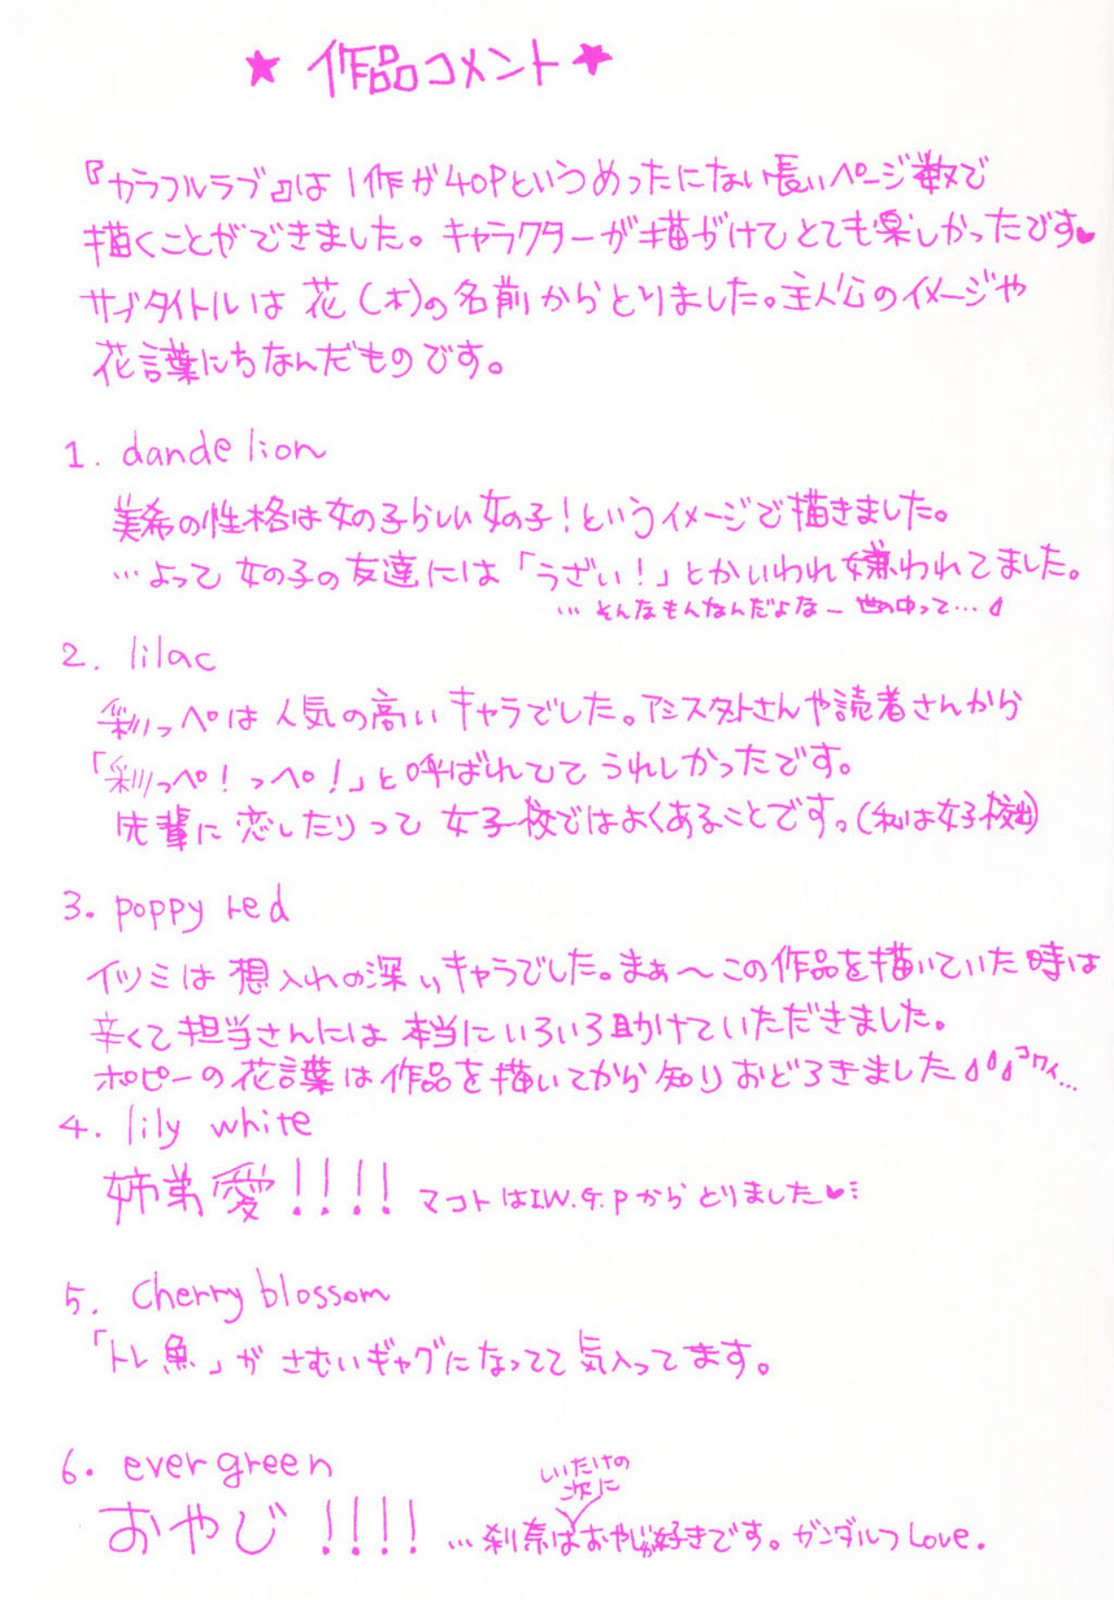 ★ 作品コメント ★
『カラフルラブ』は1作が40Pというめったにない長いページ数で
描くことができました。キャラクターが描がけてとても楽しかったです♥
サブタイトルは花(木)の名前からとりました。主人公のイメージや
花言葉にちなんだものです。
1. dandelion
美希の性格は女の子らしい女の子!というイメージで描きました。
…よって女の子の友達には「うざい!」とかいわれ嫌われてました。
…そんなもんなんだよなー世の中って…
2. lilac
彩っぺは人気の高いキャラでした。アシスタントさんや読者さんから
「彩っぺ!っぺ!」と呼ばれててうれしかったです。
先輩に恋したりって女子校ではよくあることです。(私は女子校出)
3. poppy red
イツミは想入れの深いキャラでした。まぁ〜この作品を描いていた時は
辛くて担当さんには本当にいろいろ助けていただきました。
ポピーの花言葉は作品を描いてから知りおどろきました コワイ…
4. lily white
姉弟愛!!!! マコトはI.W.G.Pからとりました♥…
5. Cherry blossom
「トレ魚」がさむいギャグになってて気入ってます。
6. ever green
しいたけの
次に
おやじ!!!! …刹奈はおやじが好きです。ガンダルフLove.